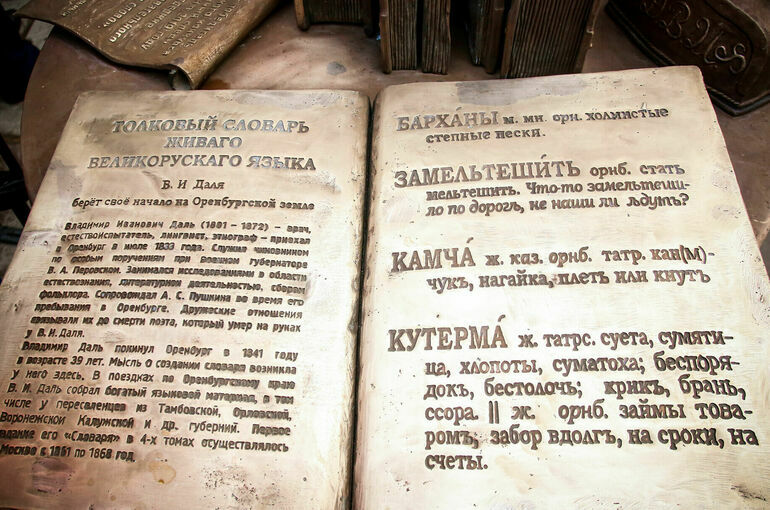 ТОЛКОВЫЙ СЛОВАРЬ
ЖИВАГО
ВЕЛИКОРУСКАГО ЯЗЫКА
В. И Даля
берёт своё начало на Оренбургской земле
Владимир Иванович Даль (1801 - 1872) - врач,
естествоиспытатель, лингвист, этнограф - приехал
в Оренбург в июле 1833 года. Служил чиновником
по особым поручениям при военном губернаторе
В. А. Перовском. Занимался исследованиями в области
естествознания, литературной деятельностью, сбором
фольклора. Сопровождал А. С. Пушкина во время его
пребывания в Оренбурге. Дружеские отношения
связывали их до смерти поэта, который умер на руках
у В. И. Даля.
Владимир Даль покинул Оренбург в 1841 году
в возрасте 39 лет. Мысль о создании словаря возникла
у него здесь. В поездках по Оренбургскому краю
В. И. Даль собрал богатый языковой материал, в том
числе у переселенцев из Тамбовской, Орловской,
Воронежской Калужской и др. губерний. Первое
издание его «Словаря» в 4-х томах осуществлялось
Москве с 1861 по 1868 год.
БАРХА́НЫ м. мн. орн. холмистые
степные пески.
ЗАМЕЛЬТЕШИ́ТЬ орнб. стать
мельтешить. Что-то замельтеши-
ло по дорогѣ, не наши ли ѣдутъ?
КАМЧА́ ж. каз. орнб. татр. кан(м)-
чукъ, нагайка, плеть или кнутъ
КУТЕРМА́ ж. татрс. суета, сумяти-
ца, хлопоты, суматоха; беспоря-
докъ, бестолочь; крикъ, брань,
ссора. || ж. орнб. займы това-
ромъ; забор вдолгъ, на сроки, на
счеты.